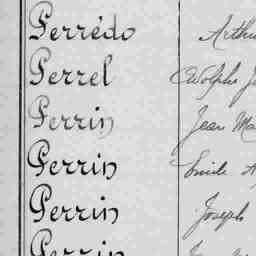 Perrédo Arthu
Perrel Adolphe J
Perrin Jean Ma
Perrin Emile A
Perrin Joseph
Perrin